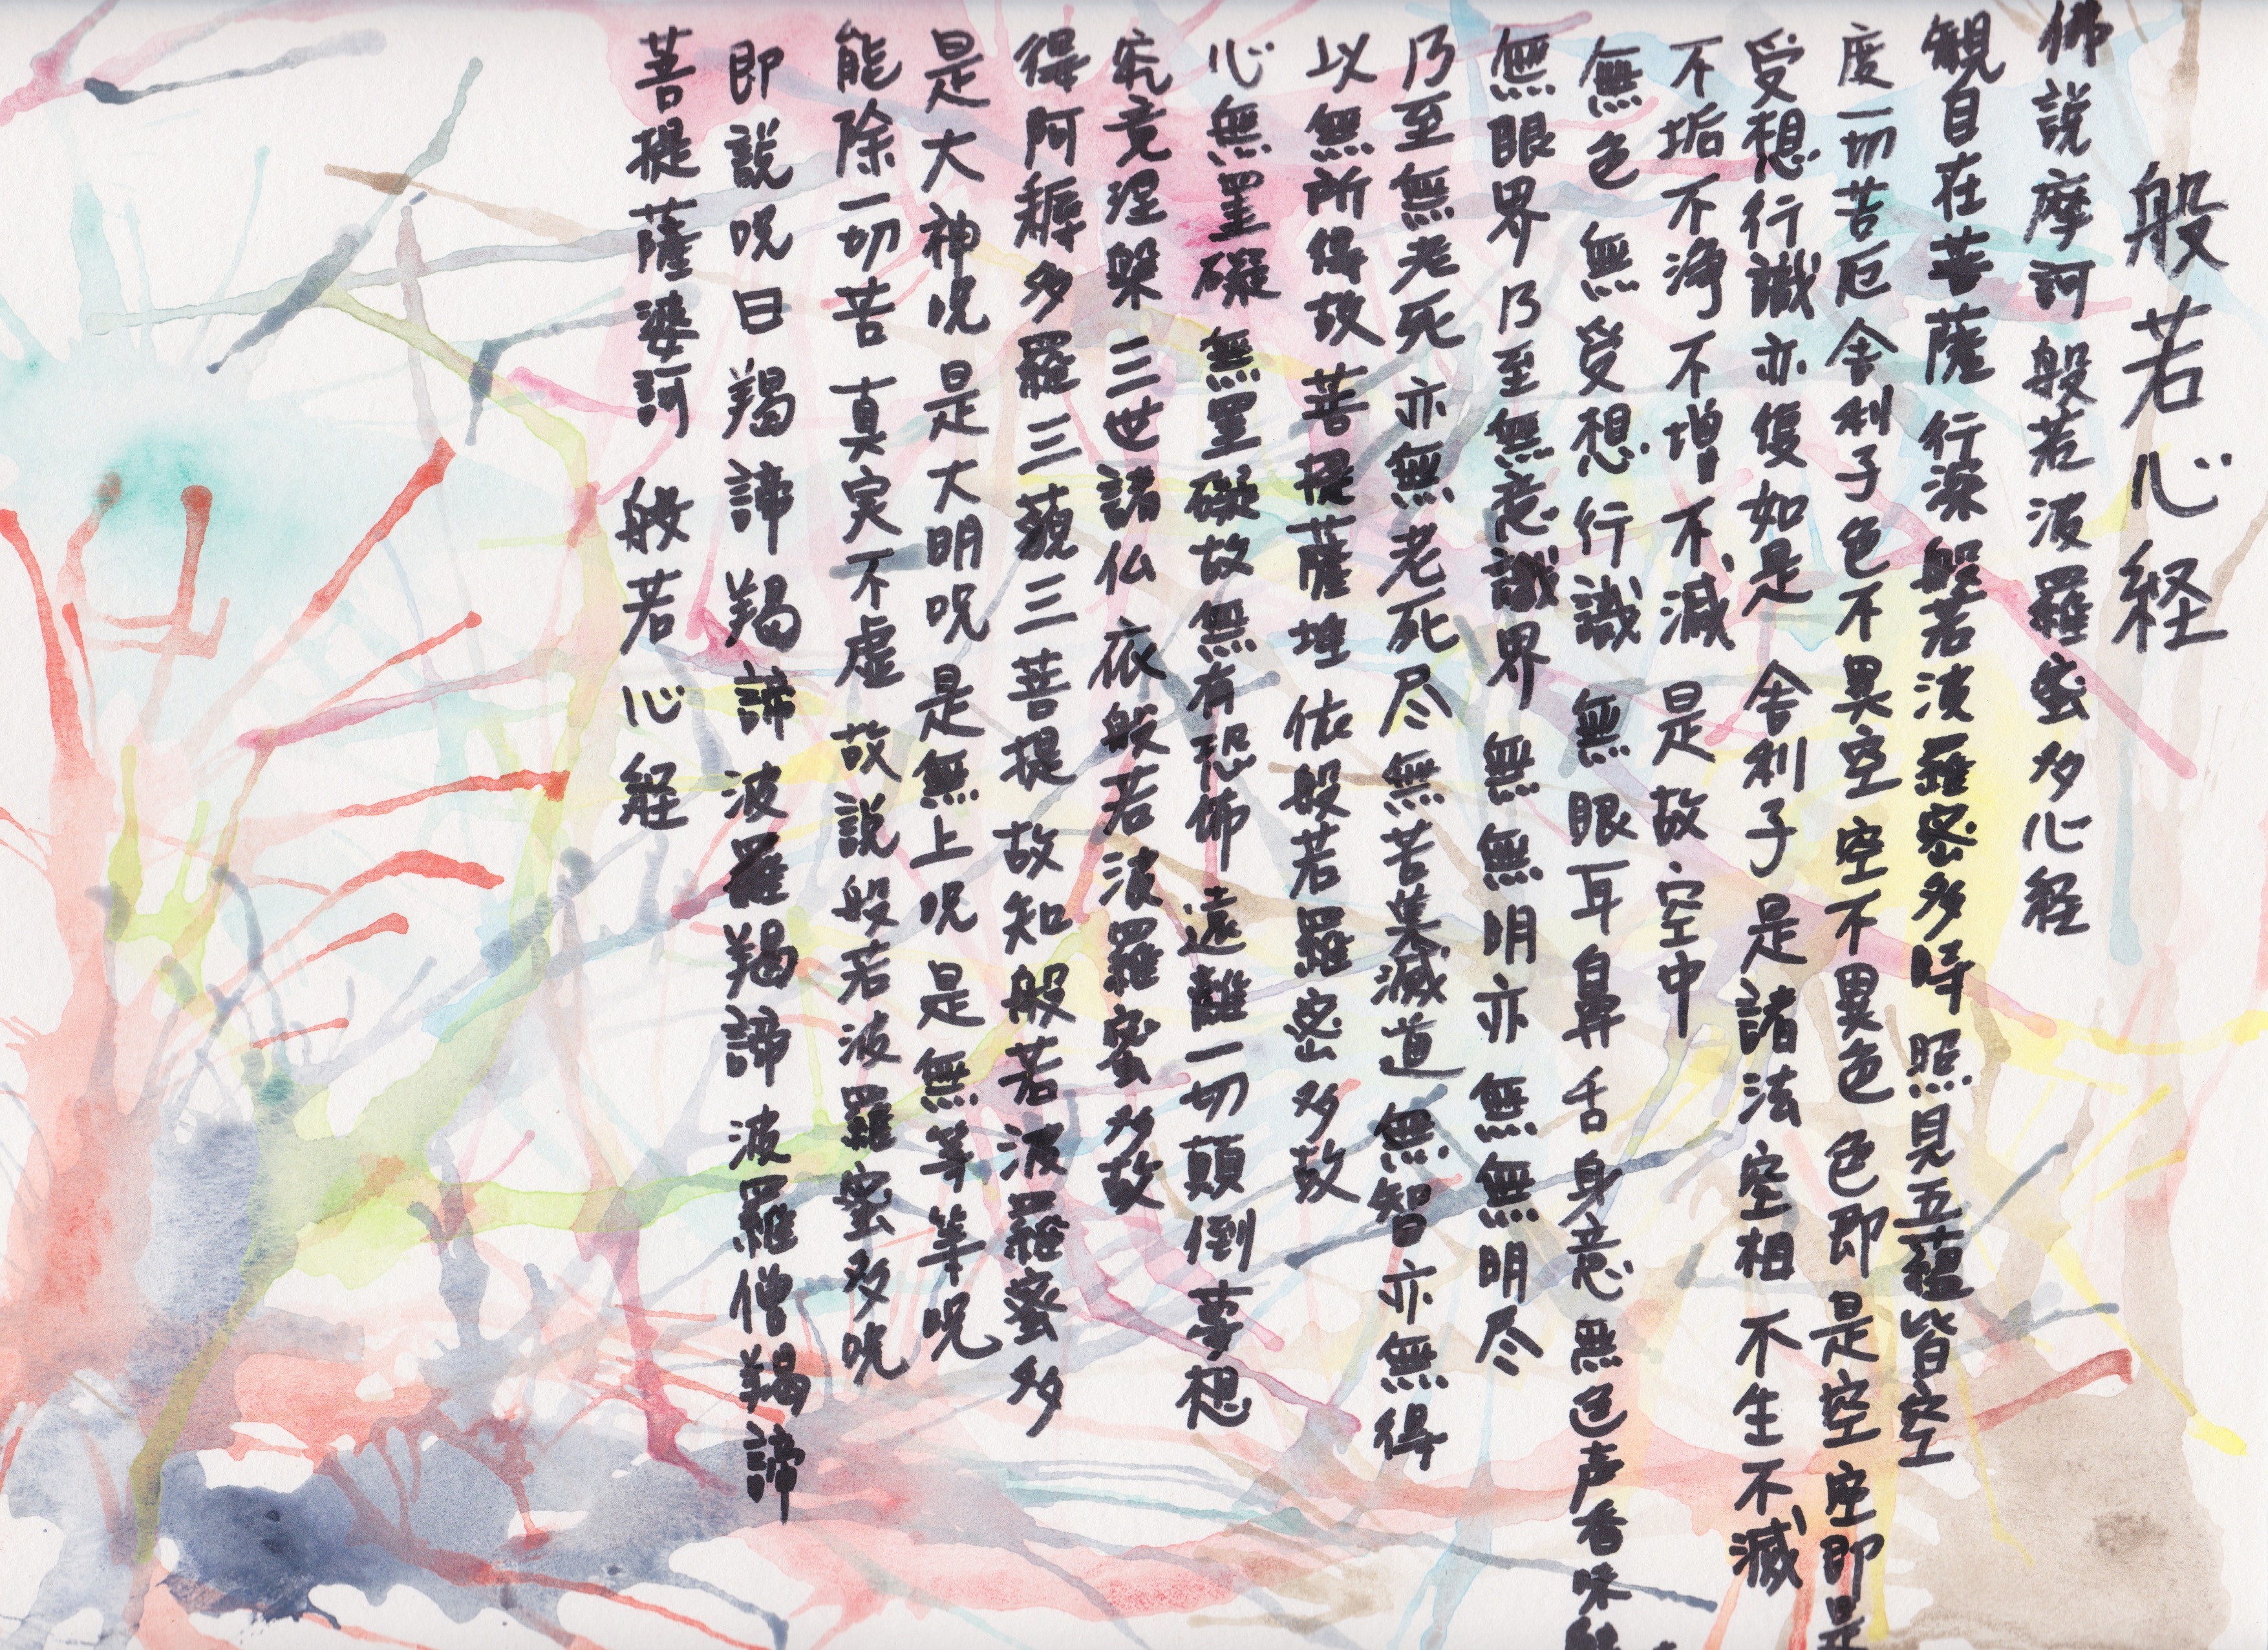 般若心経
佛説摩訶般若波羅蜜多心経
観自在菩薩行深般若波羅密多時照見五蘊皆空
度一切苦厄舎利子色不異空空不異色色即是空空即是
受想行識亦復如是舎利子是諸法空相不生不滅
不垢不浄不増不減是故空中
無色無受想行識無眼耳鼻舌身意無色声香味
無眼界乃至無意識界無無明亦無無明尽
乃至無老死亦無老死尽無苦集滅道無智亦無得
以無所得故菩提薩埵依般若羅密多故
心無罣礙無罣礙故無有恐怖遠離一切顛倒夢想
究竟涅槃三世諸仏依般若波羅蜜多故
得阿耨多羅三藐三菩提故知般若波羅蜜多
是大神呪是大明呪是無上呪是無等等呪
能除一切苦真実不虚故説般若波羅蜜多呪
即説呪曰羯諦羯諦波羅羯諦波羅僧羯諦
菩提薩婆訶般若心経